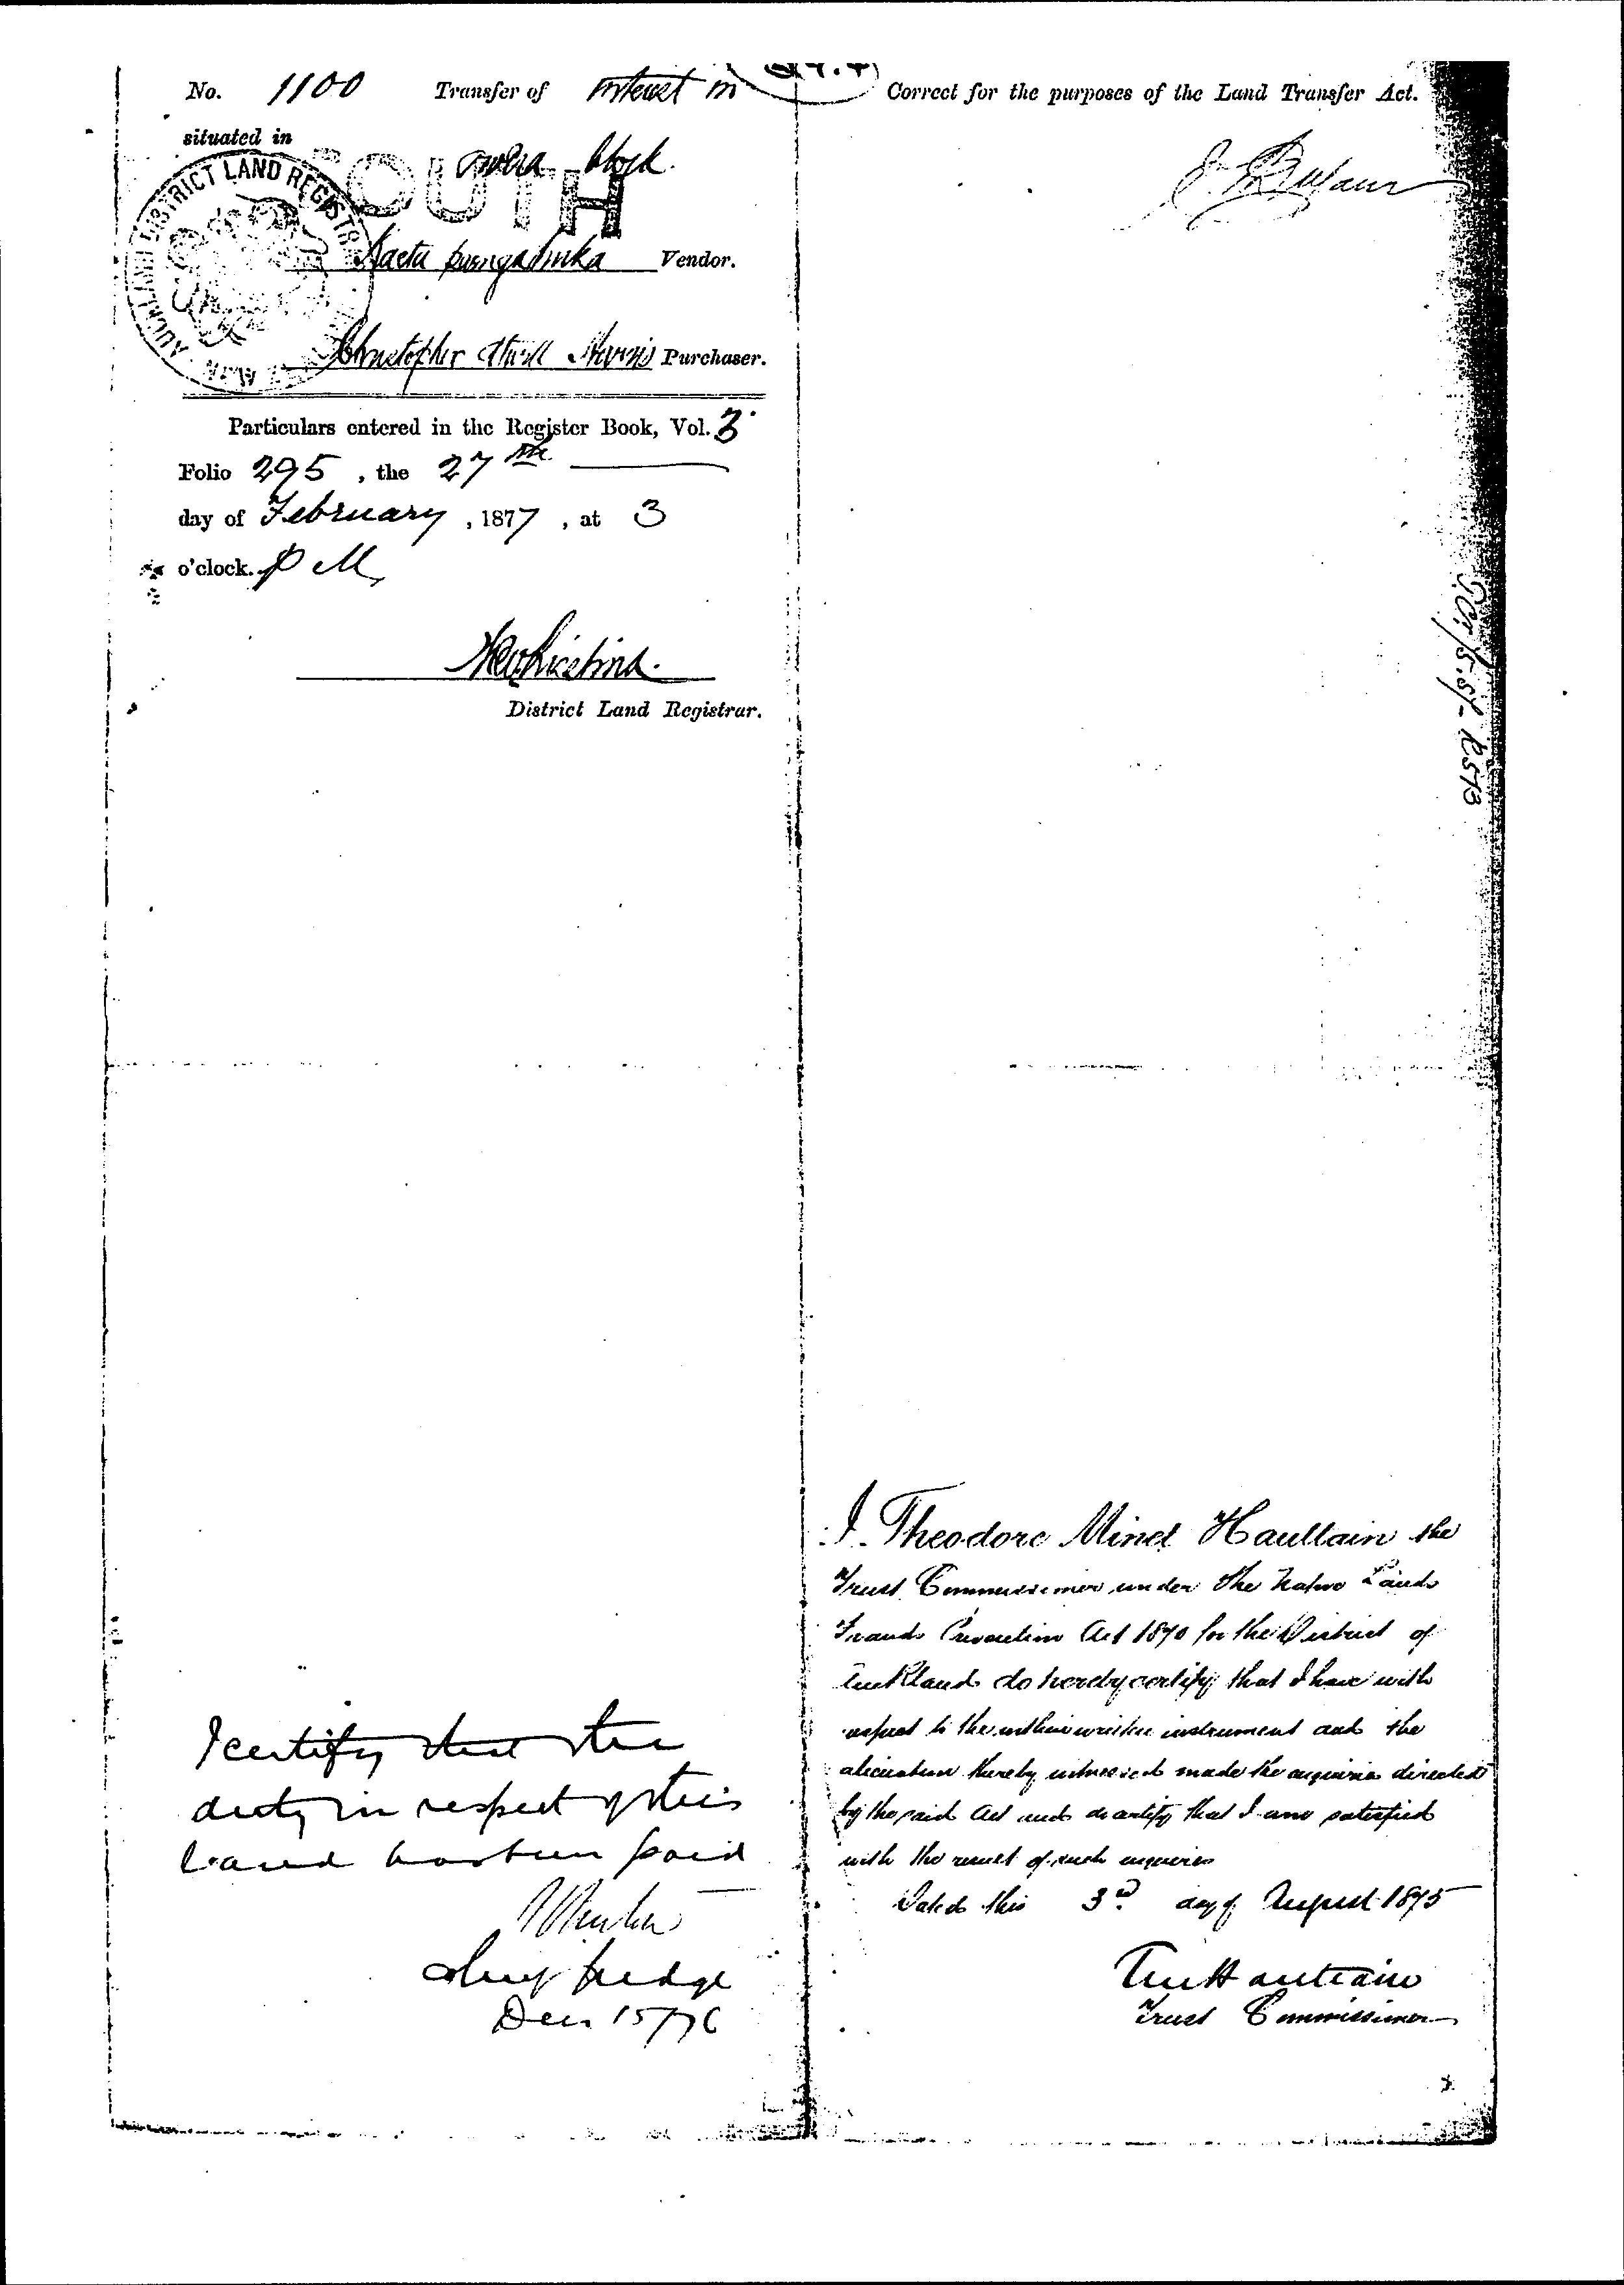 No. 1100 Transfer of interest in
situated in
block.
SOUTH
AUCKLAND DISTRICT LAND REGISTRAR
NEW
Vendor.
Christopher Atwell Harris Purchaser.
Particulars entered in the Register Book, Vol. 3
Folio 295, the 27th
day of February, 1877, at 3
o'clock. P M
District Land Registrar.
I certify that the
duty in respect of this
land has been paid
Chief Judge
Dec 15/76
Correct for the purposes of the Land Transfer Act.
I Theodore Minet Haultain the
Trust Commissioner under the Native Lands
Frauds Prevention Act 1870 for the District of
Auckland do hereby certify that I have with
respect to the within written instrument and the
alienation thereby witnessed made the inquiries directed
by the said Act and do certify that I am satisfied
with the result of such inquiries
Dated this 3rd day of August 1875
TM Haultain
Trust Commissioner